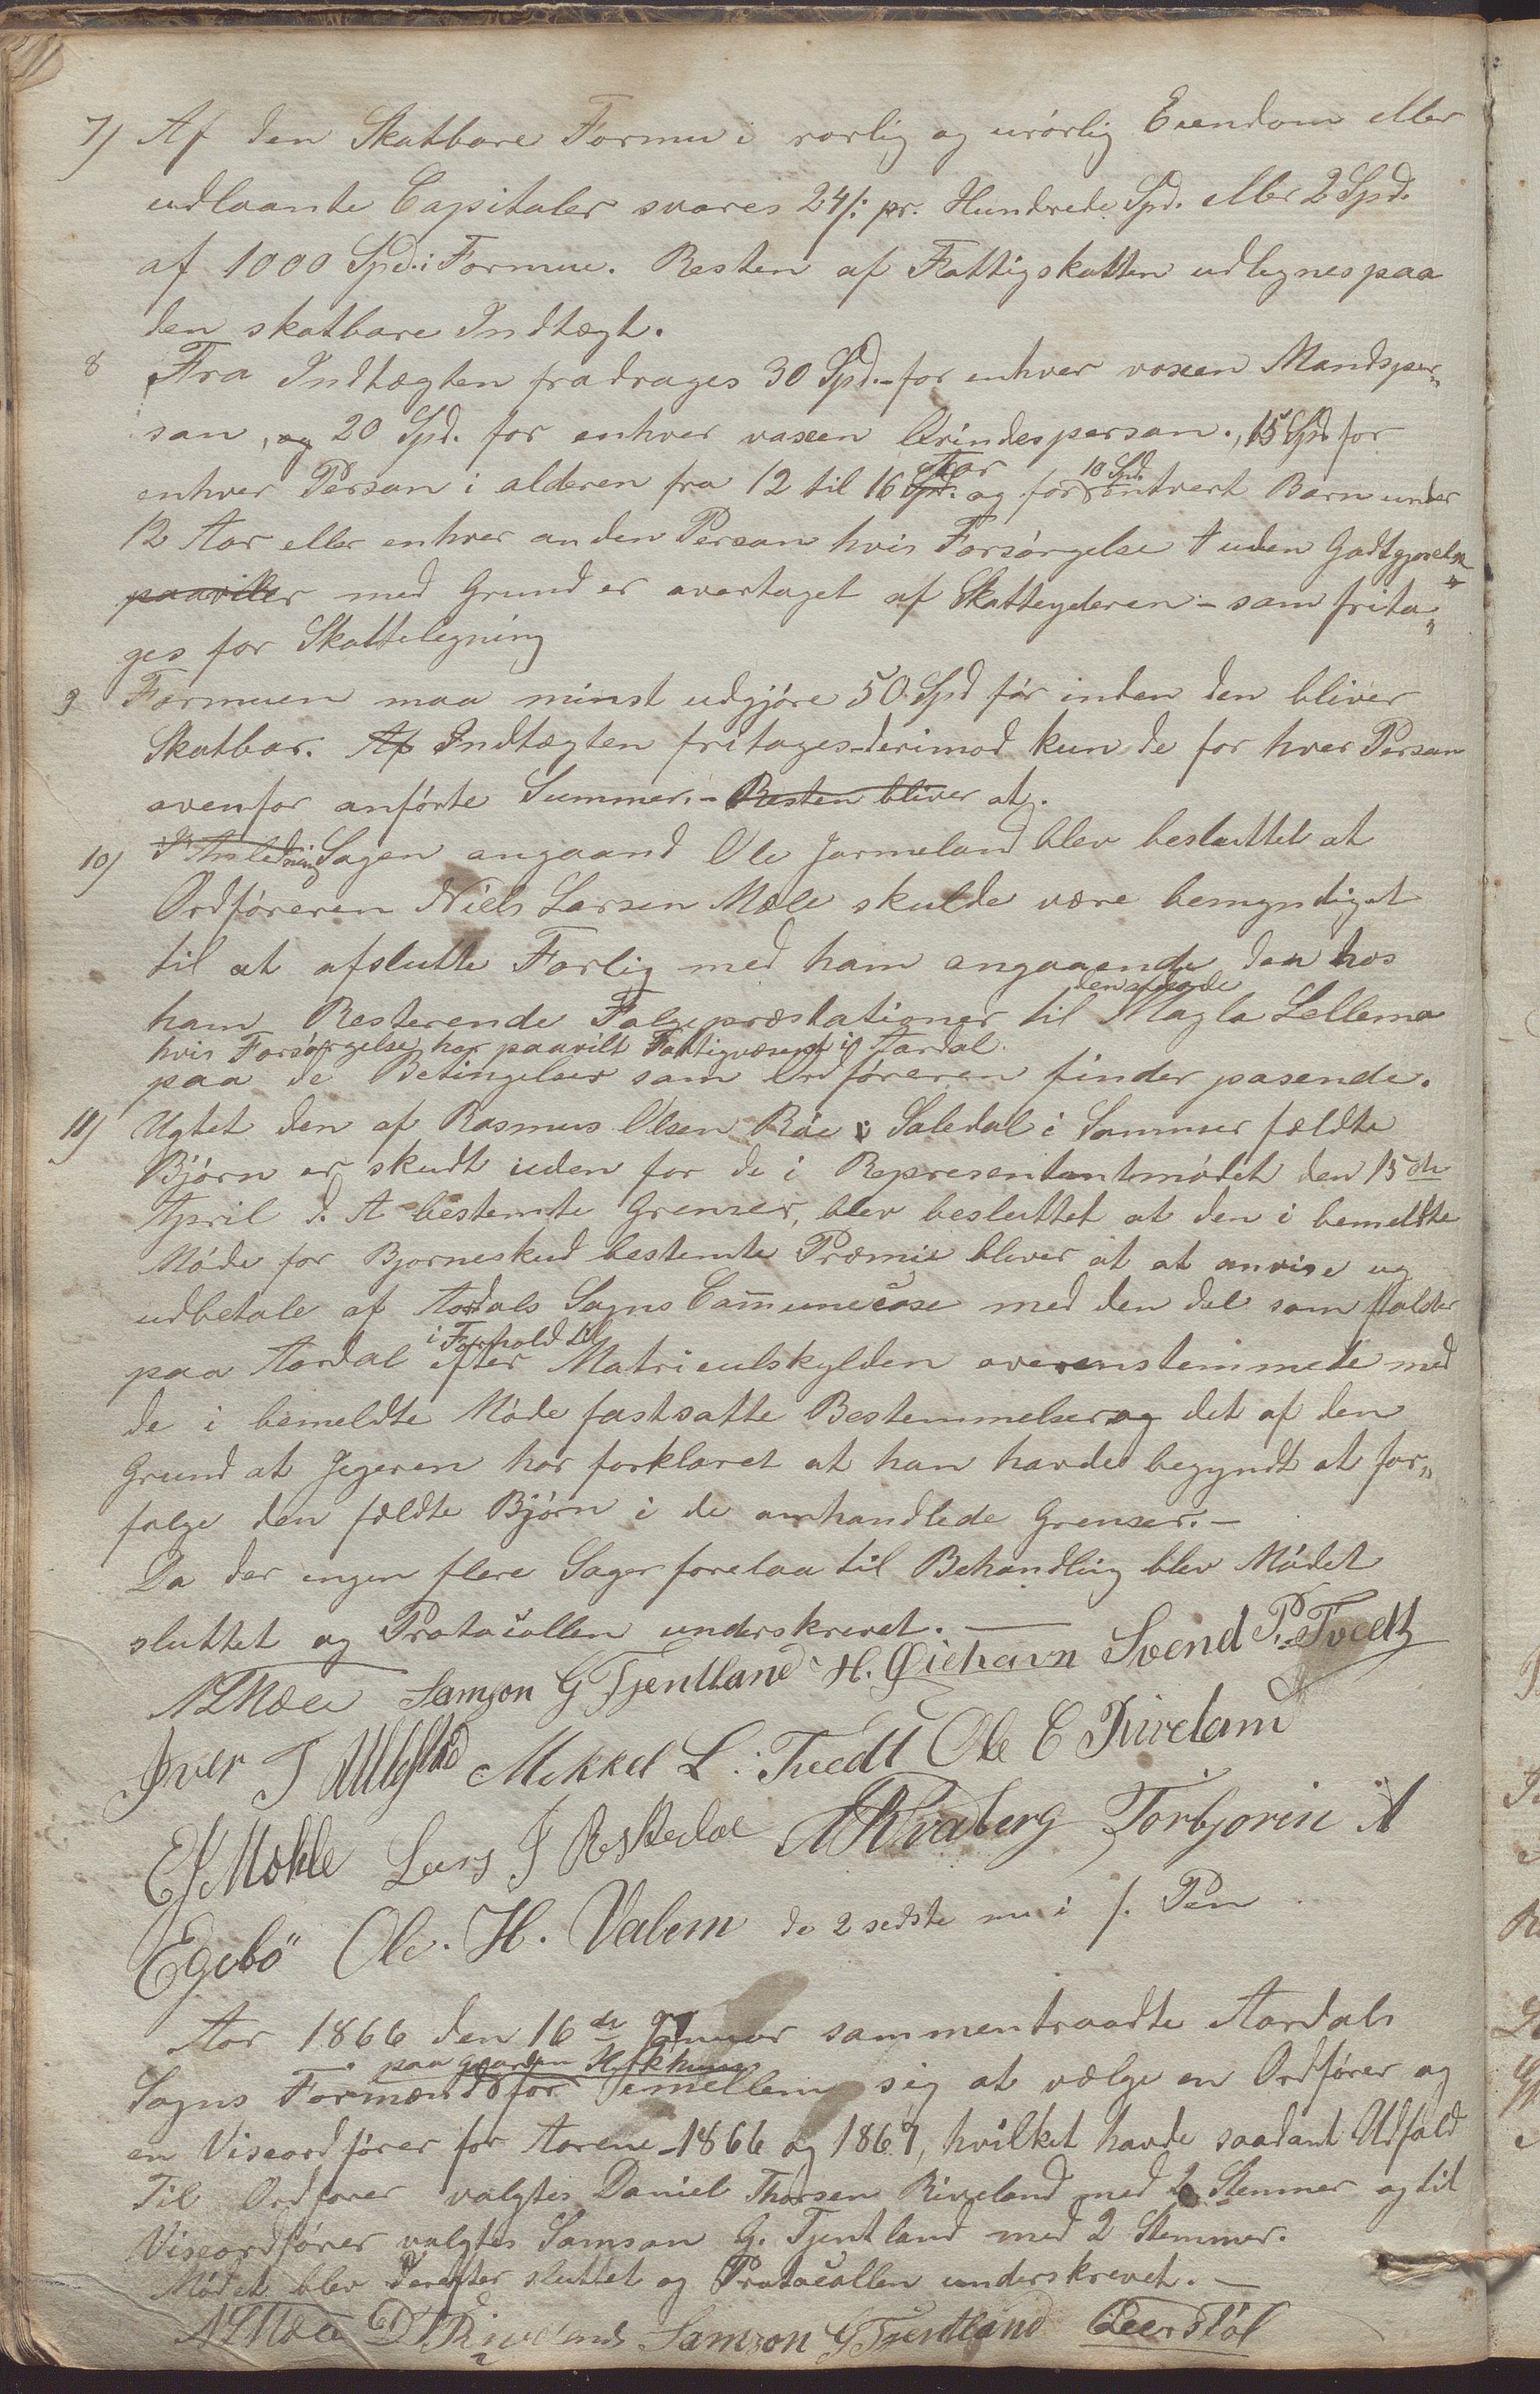 7) Af den Skatbare Formue i rørlig og urørlig Eiendom eller
udlaante Capitaler svares 24/: pr. Hundrede Spd. eller 2 Spd.
af 1000 Spd. i Formue. Resten af Fattigskatten udlignes paa
den skatbare Indtægt.
8 Fra Indtægten fradrages 30 Spd. for enhver voxen Mandsper„
son, og 20 Spd. for enhver voxen Qvindesperson., 15 Spd. for
enhver Person i alderen fra 12 til 16 Spd. Aar og for 10 Spd. ethvert Barn under
12 Aar eller enhver anden Person hvis Forsørgelse uden Godtgjørelse
paaviler med Grund er overtaget af Skatteyderen – som frita„
ges for Skattelegning
9 Formuen maa minst udgjøre 50 Spd før inden den bliver
Skatbar. Af Indtægten fritages derimod kun de for hver Person
ovenfor anførte Summer. – Resten bliver at.
10) I Anledning Sagen angaaend Ole Jørmeland blev besluttet at
Ordføreren Niels Larsen Mæle skulde være bemyndiget
til at afslutte Forlig med ham angaaende den hos
ham Resterende Følgepræstationer til den afdøde Magla Lellema
hvis Forsørgelse har paavilt Fattigvæsenet i Aardal.
paa de Betingelser som Ordføreren finder pasende.
11) Ugtet den af Rasmus Olsen Røe i Saledal i Sommer fældte
Bjørn er skudt uden for de i Representantmødet den 15de
April d. A bestemte Grenser, blev besluttet at den i bemeldte
Møde for Bjørneskud bestemte Præmie bliver at at anvise og
udbetale af Aardals Sogns Communecase med den del som falder
paa Aardal efter i Forhold til Matriculskylden overenstemmede med
de i bemeldte Møde fastsatte Bestemmelser og det af den
Grund at Jegeren har forklaret at han havde begyndt at for„
følge den fældte Bjørn i de omhandlede Grenser. –
Da der ingen flere Sager forelaa til Behandling blev Mødet
sluttet og Protocollen underskrevet. –
NLMæle Samson G Tjentland H. Qiehavn Svend P. Tvedt
Iver T Ullestad Mikkel L. Tvedt Ole E Kivelam
EJMæhle Lars J Reskedal AKvaberg Torbjorin A
Egebö Ole. H. Valem de 2 sidste m i f. Pen
Aar 1866 den 16de Januar sammentraadte Aardals
Sogns Formænd paa gaarden for imellem sig at vælge en Ordfører og
en Viseordfører for Aarene 1866 og 1867, hvilket havde saadant Udfald
Til Ordfører valgtes Daniel Thorsen Riveland med 2 Stemmer og til
Viseordfører valgtes Samson G. Tjentland med 2 Stemmer.
Mødet blev derefter sluttet og Protocollen underskrevet. –
NLMæle DTRiveland Samson GTjentland PeerStøl